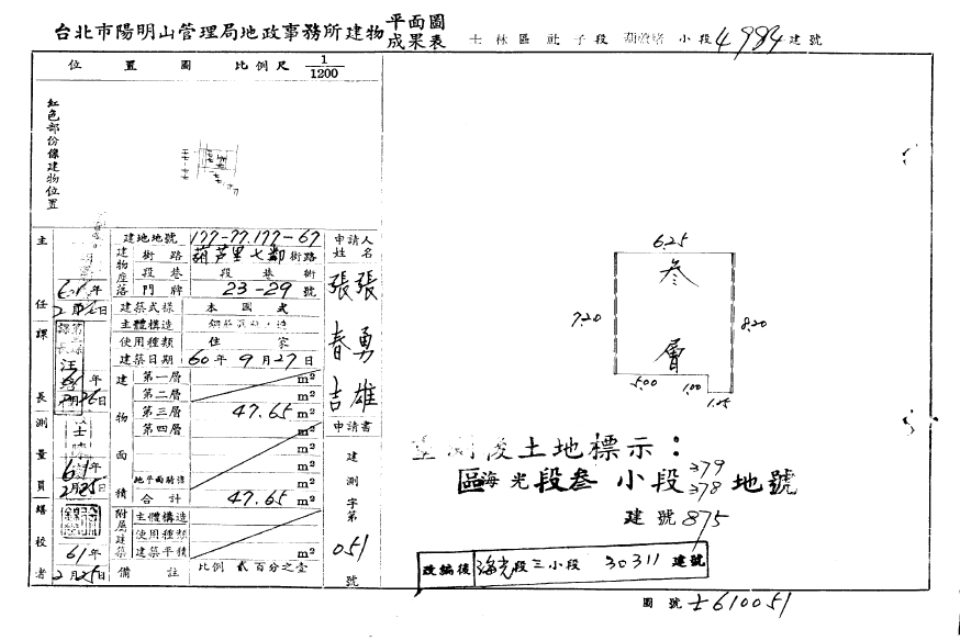 台北市陽明山管理局地政事務所建物平面圖成果表 士林區 社子段 小段4984建號
位置圖 比例尺 1/1200
紅色部份係建物位置
主任 61年2月26日
課長 61年2月26日
測量員 61年2月25日
繕校者 61年2月25日
建地地號 177-77.177-67
建物座落 街路 葫芦里七鄰街路
段巷 段巷衖
門牌 23-29號
建築式樣 本國式
主體構造
使用種類 住家
建築日期 60年9月27日
建物面積
第一層 m²
第二層 m²
第三層 47.65 m²
第四層 m²
m²
m²
地平面騎樓 m²
合計 47.65 m²
附屬建築
主體構造
使用種類
建築平積 m²
備註 比例 貳百分之壹
申請人姓名
張春吉
張勇雄
申請書
建測字第051號
6.25
叁層
7.20
8.20
5.00
1.00
1.25
重測後土地標示：
區海光段叁小段379 378地號
建號875
改編後 海光段三小段 30311建號
圖號 士610051